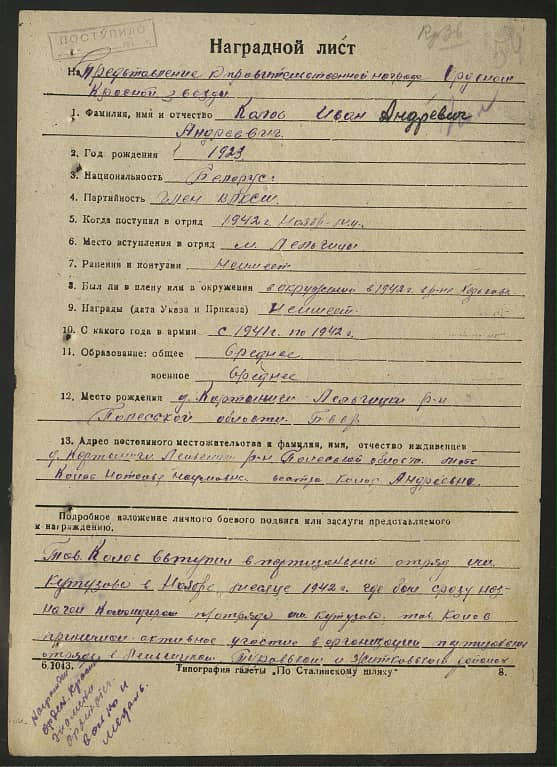 ПОСТУПИЛО
Наградной лист
На Представление к правительственной награде
Красной звезды
1. Фамилия, имя и отчество Колос Иван Андревич
Андреевич
2. Год рождения 1923
3. Национальность Белорус
4. Партийность Член ВЛКСМ
5. Когда поступил в отряд 1942 г. Ноябр
6. Место вступления в отряд м. Лельчицы
7. Ранения и контузии Неимеет
8. Был ли в плену или в окружении в окружении в 1942 г.
9. Награды (дата Указа и Приказа) Неимеет
10. С какого года в армии с 1941 г. по 1942 г.
11. Образование: общее Среднее
военное Среднее
12. Место рождения д. р-н
Полесской области
13. Адрес постоянного местожительства и фамилия, имя, отчество иждивенцев
д. р-н Полесской
Колос сестра Колос Андреевна
Подробное изложение личного боевого подвига или заслуги представляемого
к награждению.
Тов. Колос вступил в партизанский отряд им.
Кутузова в Ноябре месяце 1942 г. где был сразу наз-
начен Командиром отряда им. Кутузова, тов. Колос
принимал активное участие в организации партизанских
отрядов в Лельчицком Туровском и Житковском районах
6.1043. Типография газеты „По Сталинскому шляху“ 8.